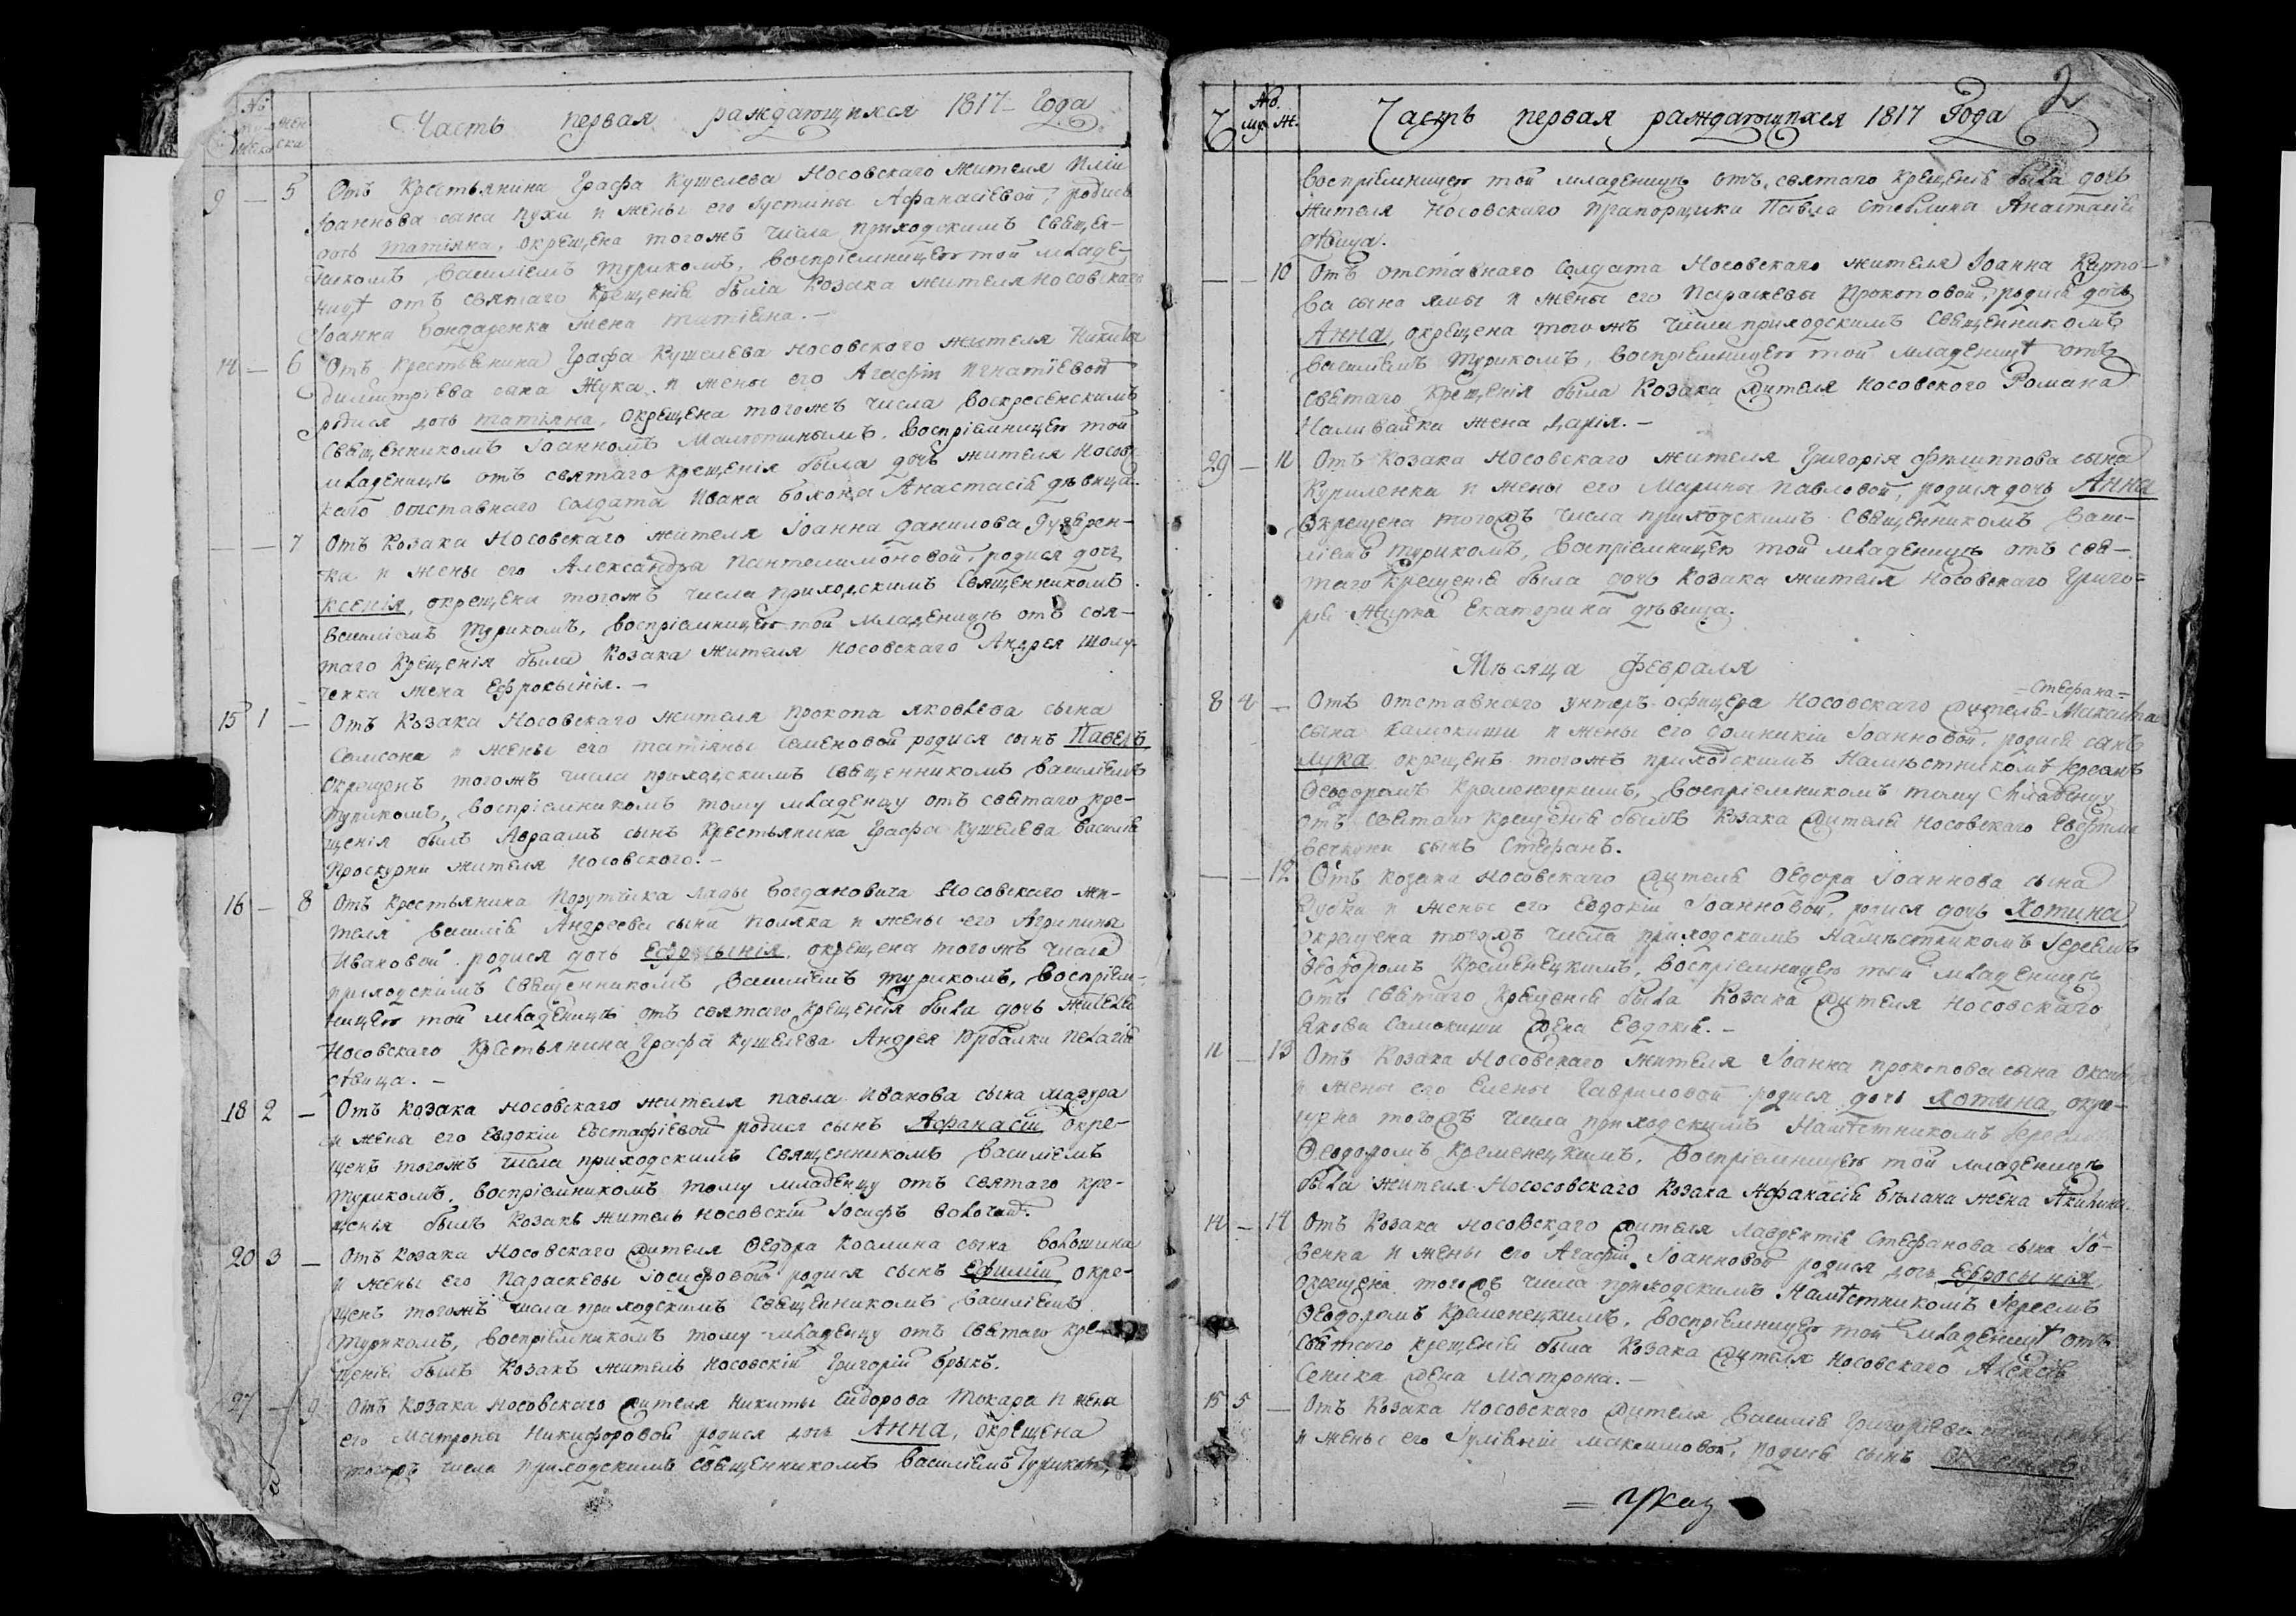 №
Часть первая раждающихся 1817 Года
9 — 5 Отъ Крестьянина Графа Кушелева Носовскаго жителя Иліи
Іоаннова сына Пухи и жены его Іустины Афанасіевой, родися
дочь Татіяна, окрещена тогожъ числа приходскимъ Священ-
никомъ Василіемъ Турикомъ, воспріемницею той младе-
ницѣ отъ святаго крещенія была Козака жителя Носовскаго
Іоанна Бондаренка жена Татіяна. —
14 — 6 Отъ Крестьянина Графа Кушелева Носовского жителя Никиты
Димитріева сына Жука и жены его Агафіи Игнатіевой
родися дочь Татіяна, окрещена тогожъ числа Воскресенскимъ
Священникомъ Іоанномъ Малютинымъ, воспріемницею той
младеницѣ отъ святаго крещенія была дочь жителя Носовс-
каго отставнаго солдата Ивана Анастасія дѣвица.
— — 7 Отъ Козака Носовскаго жителя Іоанна Данилова
ка и жены его Александры Пантелимоновой, родися дочь
Ксенія, окрещена тогожъ числа приходскимъ Священникомъ
Василіемъ Турикомъ, воспріемницею той младеницѣ отъ свя-
таго крещенія была Козака жителя Носовскаго Андрея Шолу-
ченка жена Ефросынія. —
15 1 — Отъ Козака Носовскаго жителя Прокопа Яковлева сына
Самсона и жены его Татіяны Семеновой родися сынъ Павелъ
окрещенъ тогожъ числа приходскимъ священникомъ Василіемъ
Турикомъ, воспріемникомъ тому младенцу отъ святаго кре-
щенія былъ Авраамъ сынъ Крестьянина Графа Кушелева Василія
Проскурни жителя Носовского. —
16 — 8 Отъ Крестьянина Порутчика Лады Богдановича Носовскаго жи-
теля Василія Андреева сына Поляка и жены его Агрипины
Ивановой родися дочь Ефросынія, окрещена тогожъ числа
приходскимъ Священникомъ Василіемъ Турикомъ, воспріем-
ницею той младеницѣ отъ святаго крещенія была дочь жителя
Носовскаго Крестьянина Графа Кушелева Андрея Пелагія
дѣвица. —
18 2 — Отъ Козака Носовскаго жителя Павла Иванова сына Мазура
и жены его Евдокіи Евстафіевой родися сынъ Афанасій окре-
щенъ тогожъ числа приходскимъ Священникомъ Василіемъ
Турикомъ, воспріемникомъ тому младенцу отъ святаго кре-
щенія былъ Козакъ житель Носовскій Іосифъ
20 3 — Отъ Козака Носовскаго жителя Ѳедора Космина сына Волошина
и жены его Параскевы Іосифовой родися сынъ Ефимій окре-
щенъ тогожъ числа приходскимъ Священникомъ Василіемъ
Турикомъ, воспріемникомъ тому младенцу отъ святаго кре-
щенія былъ Козакъ житель Носовскій Григорій Брыкъ.
27 — 9 Отъ Козака Носовскаго жителя Никиты Сидорова Токаря и жены
его Матроны Никифоровой родися дочь Анна, окрещена
тогожъ числа приходскимъ Священникомъ Василіемъ Туриком,
2
№ му. ж. Часть первая раждающихся 1817 Года
воспріемницею той младеницѣ отъ святаго крещенія была дочь
жителя Носовскаго прапорщика Павла Анастасія
дѣвица.
— — 10 Отъ отставнаго Солдата Носовскаго жителя Іоанна Карпо-
ва сына Ямы и жены его Параскевы Прокоповой, родися дочь
Анна, окрещена тогожъ числа приходскимъ Священникомъ
Василіемъ Турикомъ, воспріемницею той младеницѣ отъ
святаго крещенія была Козака жителя Носовского Романа
Наливайка жена Дарія. —
29 — 11 Отъ Козака Носовскаго жителя Григорія Филиппова сына
Куриленка и жены его Марины Павловой, родися дочь Анна
окрещена тогожъ числа приходскимъ Священникомъ Васи-
ліемъ Турикомъ, воспріемницею той младеницѣ отъ свя-
таго крещенія была дочь Козака жителя Носовскаго Григо-
рія Екатерина дѣвица.
Мѣсяца Февраля
— Стефана —
8 4 — Отъ отставнаго унтеръ-офицера Носовскаго жителя
сына Самокиши и жены его Домникіи Іоанновой, родися сынъ
Лука окрещенъ тогожъ приходскимъ Намѣстникомъ Іереемъ
Ѳеодоромъ Кременецкимъ, воспріемникомъ тому младенцу
отъ святаго крещенія былъ Козака жителя Носовскаго
сынъ Стефанъ.
— — 12 Отъ Козака Носовскаго жителя Ѳеодора Іоаннова сына
и жены его Евдокіи Іоанновой, родися дочь Хотина
окрещена тогожъ числа приходскимъ Намѣстникомъ Іереемъ
Ѳеодоромъ Кременецкимъ, воспріемницею той младеницѣ
отъ святаго крещенія была Козака жителя Носовскаго
Якова Самокиши жена Евдокія. —
11 — 13 Отъ Козака Носовскаго жителя Іоанна Прокопова сына
и жены его Елены Гавриловой родися дочь Хотина, окре-
щена тогожъ числа приходскимъ Намѣстникомъ Іереемъ
Ѳеодоромъ Кременецкимъ, воспріемницею той младеницѣ
была жителя Нососовскаго Козака Афанасія Бѣлана жена Акилина.
14 — 14 Отъ Козака Носовскаго жителя Лаврентія Стефанова сына
венка и жены его Агафіи Іоанновой родися дочь Ефросынія
окрещена тогожъ числа приходскимъ Намѣстникомъ Іереемъ
Ѳеодоромъ Кременецкимъ, воспріемницею той младеницѣ отъ
святаго крещенія была Козака жителя Носовскаго Алексія
Сеника жена Матрона. —
15 5 — Отъ Козака Носовскаго жителя Василія Григоріева
и жены его Іуліяніи Максимовой, родися сынъ